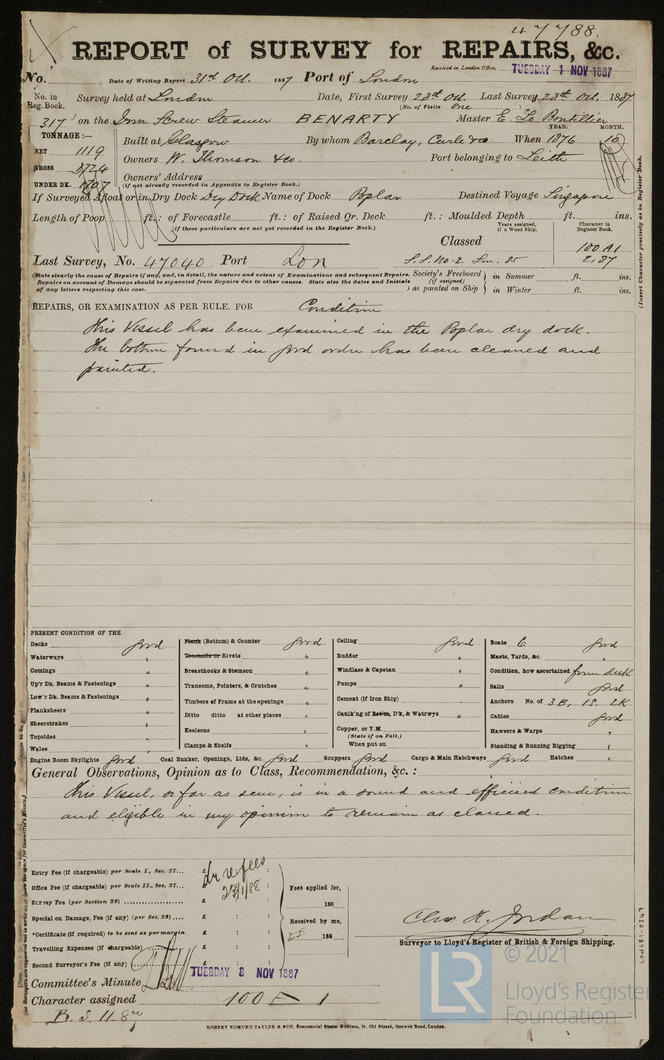 47788.
REPORT of SURVEY for REPAIRS, &c.
Received in London Office, TUESDAY 1 NOV 1887
No. Date of Writing Report 31st Oct. 1887 Port of London
No. in Reg. Book. Survey held at London Date, First Survey 28th Oct. Last Survey 28th Oct. 1887
(No. of Visits one
317 on the Iron Screw Steamer BENARTY Master E. Le Boutillier
TONNAGE:— YEAR. MONTH.
NET 1119 Built at Glasgow By whom Barclay, Curle & Co. When 1876 10
GROSS 1724 Owners W. Thomson & Co. Port belonging to Leith
UNDER DK. 1707 Owners' Address
(if not already recorded in Appendix to Register Book.)
If Surveyed Afloat or in Dry Dock Dry Dock Name of Dock Poplar Destined Voyage Singapore
Length of Poop ft.: of Forecastle ft.: of Raised Qr. Deck ft.: Moulded Depth ft. ins.
(if these particulars are not yet recorded in the Register Book.)
Years assigned, if a Wood Ship. Character in Register Book.
Classed 100 A1
Last Survey, No. 47040 Port Lon S.S. No. 2. Lon. 85 2,87
State clearly the cause of Repairs if any, and, in detail, the nature and extent of Examinations and subsequent Repairs.
Repairs on account of Damage should be separated from Repairs due to other causes. State also the dates and Initials
of any letters respecting this case.
Society's Freeboard (if assigned) as painted on Ship
in Summer ft. ins.
in Winter ft. ins.
(Insert Character precisely as in Register Book.
REPAIRS, OR EXAMINATION AS PER RULE, FOR Condition
This Vessel has been examined in the Poplar dry dock.
The bottom found in good order has been cleaned and
painted.
PRESENT CONDITION OF THE
Decks good
Waterways "
Comings "
Up'r Dk. Beams & Fastenings "
Low'r Dk. Beams & Fastenings "
Planksheers "
Sheerstrakes "
Topsides "
Wales "
Plank (Bottom) & Counter good
Treenails or Rivets "
Breasthooks & Stemson "
Transoms, Pointers, & Crutches "
Timbers of Frame at the openings "
Ditto ditto at other places "
Keelsons "
Clamps & Shelfs "
Ceiling good
Rudder "
Windlass & Capstan "
Pumps "
Cement (if Iron Ship) "
Caulk'ng of Bottom, D'k, & Watrwys "
Copper, or Y.M.
(State if on Felt.)
When put on
Boats 6 good
Masts, Yards, &c. "
Condition, how ascertained from deck
Sails good
Anchors No. of 3B, 1S. 2K
Cables good
Hawsers & Warps "
Standing & Running Rigging "
Engine Room Skylights good Coal Bunker, Openings, Lids, &c. good Scuppers good Cargo & Main Hatchways good Hatches "
General Observations, Opinion as to Class, Recommendation, &c.:
This Vessel, so far as seen, is in a sound and efficient condition
and eligible in my opinion to remain as classed.
Entry Fee (if chargeable) per Scale I., Sec. 27... £
Office Fee (if chargeable) per Scale II., Sec. 27... £
Survey Fee (per Section 28) £
Special on Damage, Fee (if any) (per Sec. 28) £
*Certificate (if required) to be sent as per margin £
Travelling Expenses (if chargeable) £
Second Surveyor's Fee (if any) £
Fees applied for,
188
Received by me,
188
Chas. H. Jordan
Surveyor to Lloyd's Register of British & Foreign Shipping.
Committee's Minute TUESDAY 8 NOV 1887
Character assigned 100 A 1
B.S. 11.87
ROBERT EDMUND TAYLOR & SON, Commercial Steam Printers, 19, Old Street, Goswell Road, London.
LON681-0347
© 2021
LR
Lloyd's Register
Foundation